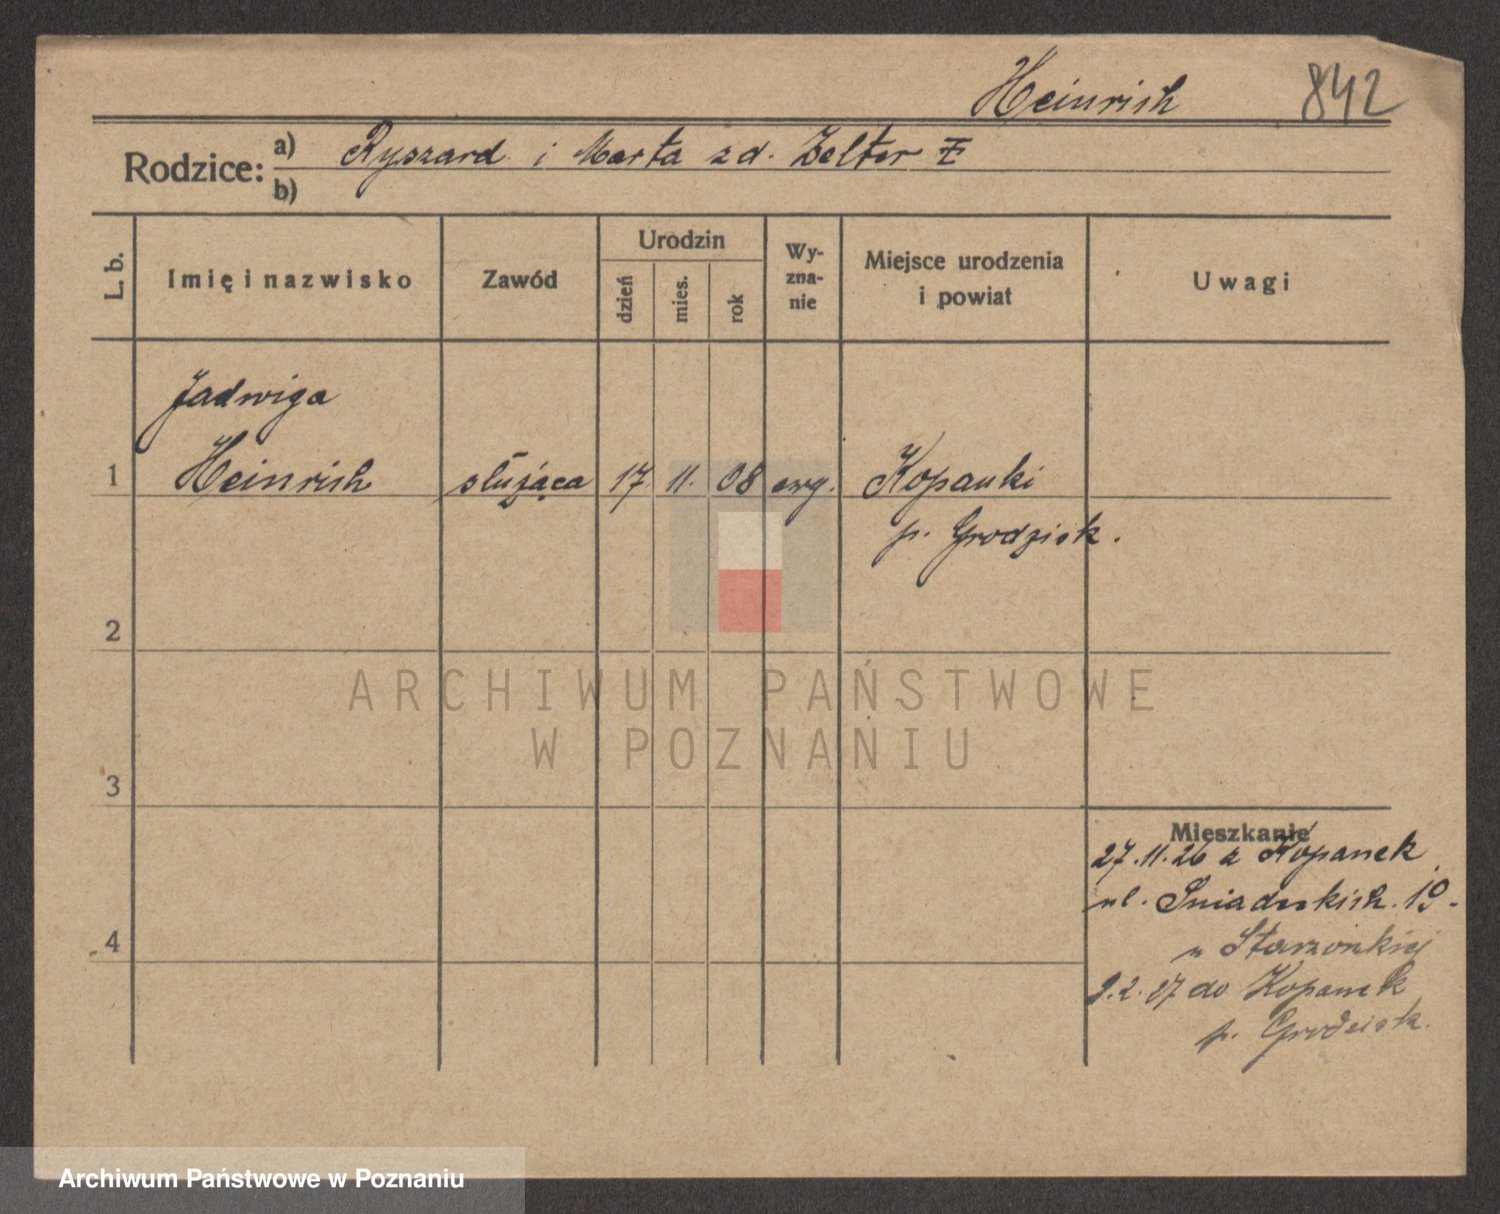 Heinrich 842
Rodzice: a) Ryszard i Marta z d. Zelter
b)
L. b. Imię i nazwisko Zawód Urodzin dzień mies. rok Wy-zna-nie Miejsce urodzenia i powiat Uwagi
Jadwiga
1 Heinrich służąca 17. 11. 08 ewg. Kopanki
p. Grodzisk.
2
ARCHIWUM PAŃSTWOWE
W POZNANIU
3
Mieszkanie
27.11.26 z Kopanek
ul. Śniadeckich. 19.
4
u
9.2.27 do Kopanek
p. Grodzisk.
Archiwum Państwowe w Poznaniu